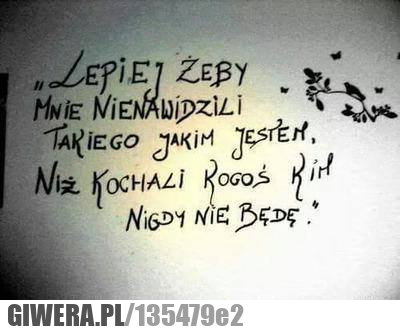 „LEPIEJ ŻEBY
MNIE NIENAWIDZILI
TAKIEGO JAKIM JESTEM,
NIŻ KOCHALI KOGOŚ KIM
NIGDY NIE BĘDĘ."
GIWERA.PL/135479e2